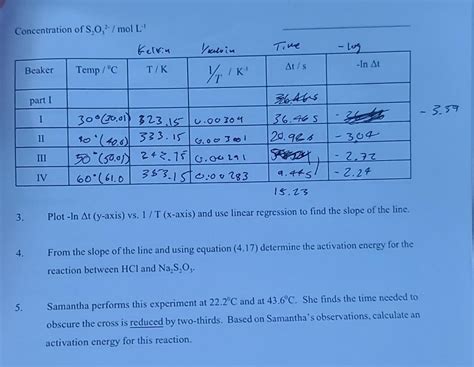 Concentration of S₂O₃²⁻ / mol L⁻¹
Kelvin Time -log
Beaker Temp / ⁰C T / K 1/T / K⁻¹ Δt / s -ln Δt
part I 36.46s
I 30°(30.01) 323.15 0.00309 36.46s - 3.59
II (40.0) 333.15 0.00301 20.92s - 3.04
III 50°(50.01) 0.00291 - 2.72
IV 60°(61.0 353.15 0.00283 9.44s - 2.24
15.23
3. Plot -ln Δt (y-axis) vs. 1 / T (x-axis) and use linear regression to find the slope of the line.
4. From the slope of the line and using equation (4.17) determine the activation energy for the
reaction between HCl and Na₂S₂O₃.
5. Samantha performs this experiment at 22.2⁰C and at 43.6⁰C. She finds the time needed to
obscure the cross is reduced by two-thirds. Based on Samantha's observations, calculate an
activation energy for this reaction.